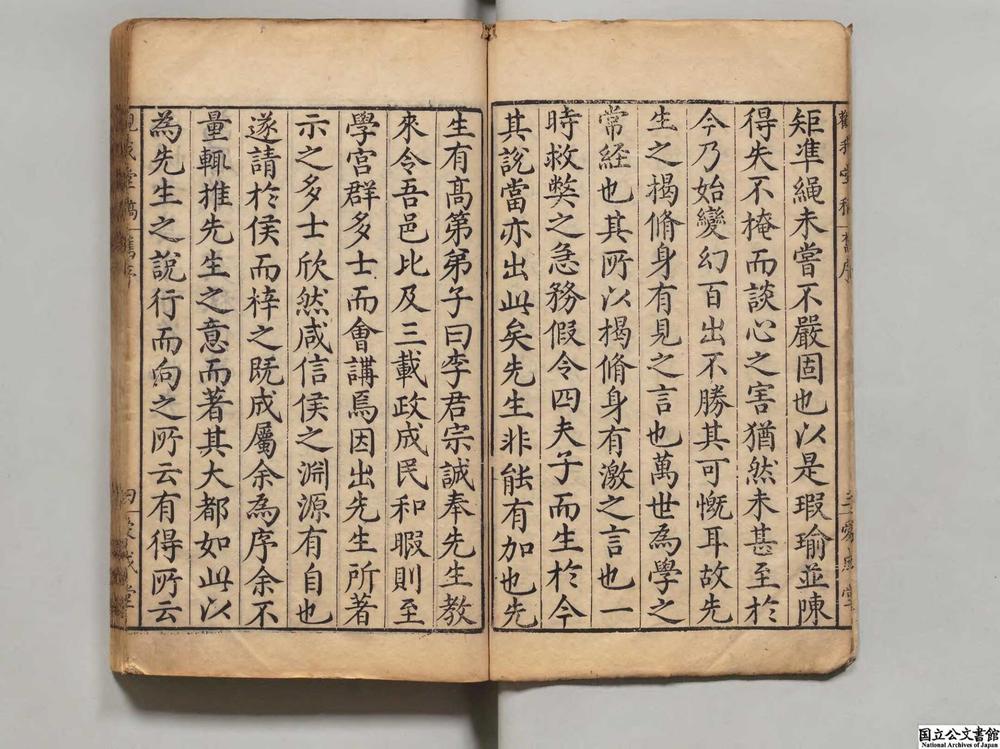 矩準繩未嘗不嚴固也以是瑕瑜並陳
得失不掩而談心之害猶然未甚至於
今乃始變幻百出不勝其可慨耳故先
生之揭脩身有見之言也萬世為學之
常経也其所以揭脩身有激之言也一
時救獘之急務假令四夫子而生於今
其說當亦出此矣先生非能有加也先
生有高第弟子曰李君宗誠奉先生教
來令吾邑比及三載政成民和暇則至
學宮群多士而會講焉因出先生所著
示之多士欣然咸信侯之淵源有自也
遂請於侯而梓之既成屬余為序余不
量輒推先生之意而著其大都如此以
為先生之說行而向之所云有得所云
國立公文書館
National Archives of Japan